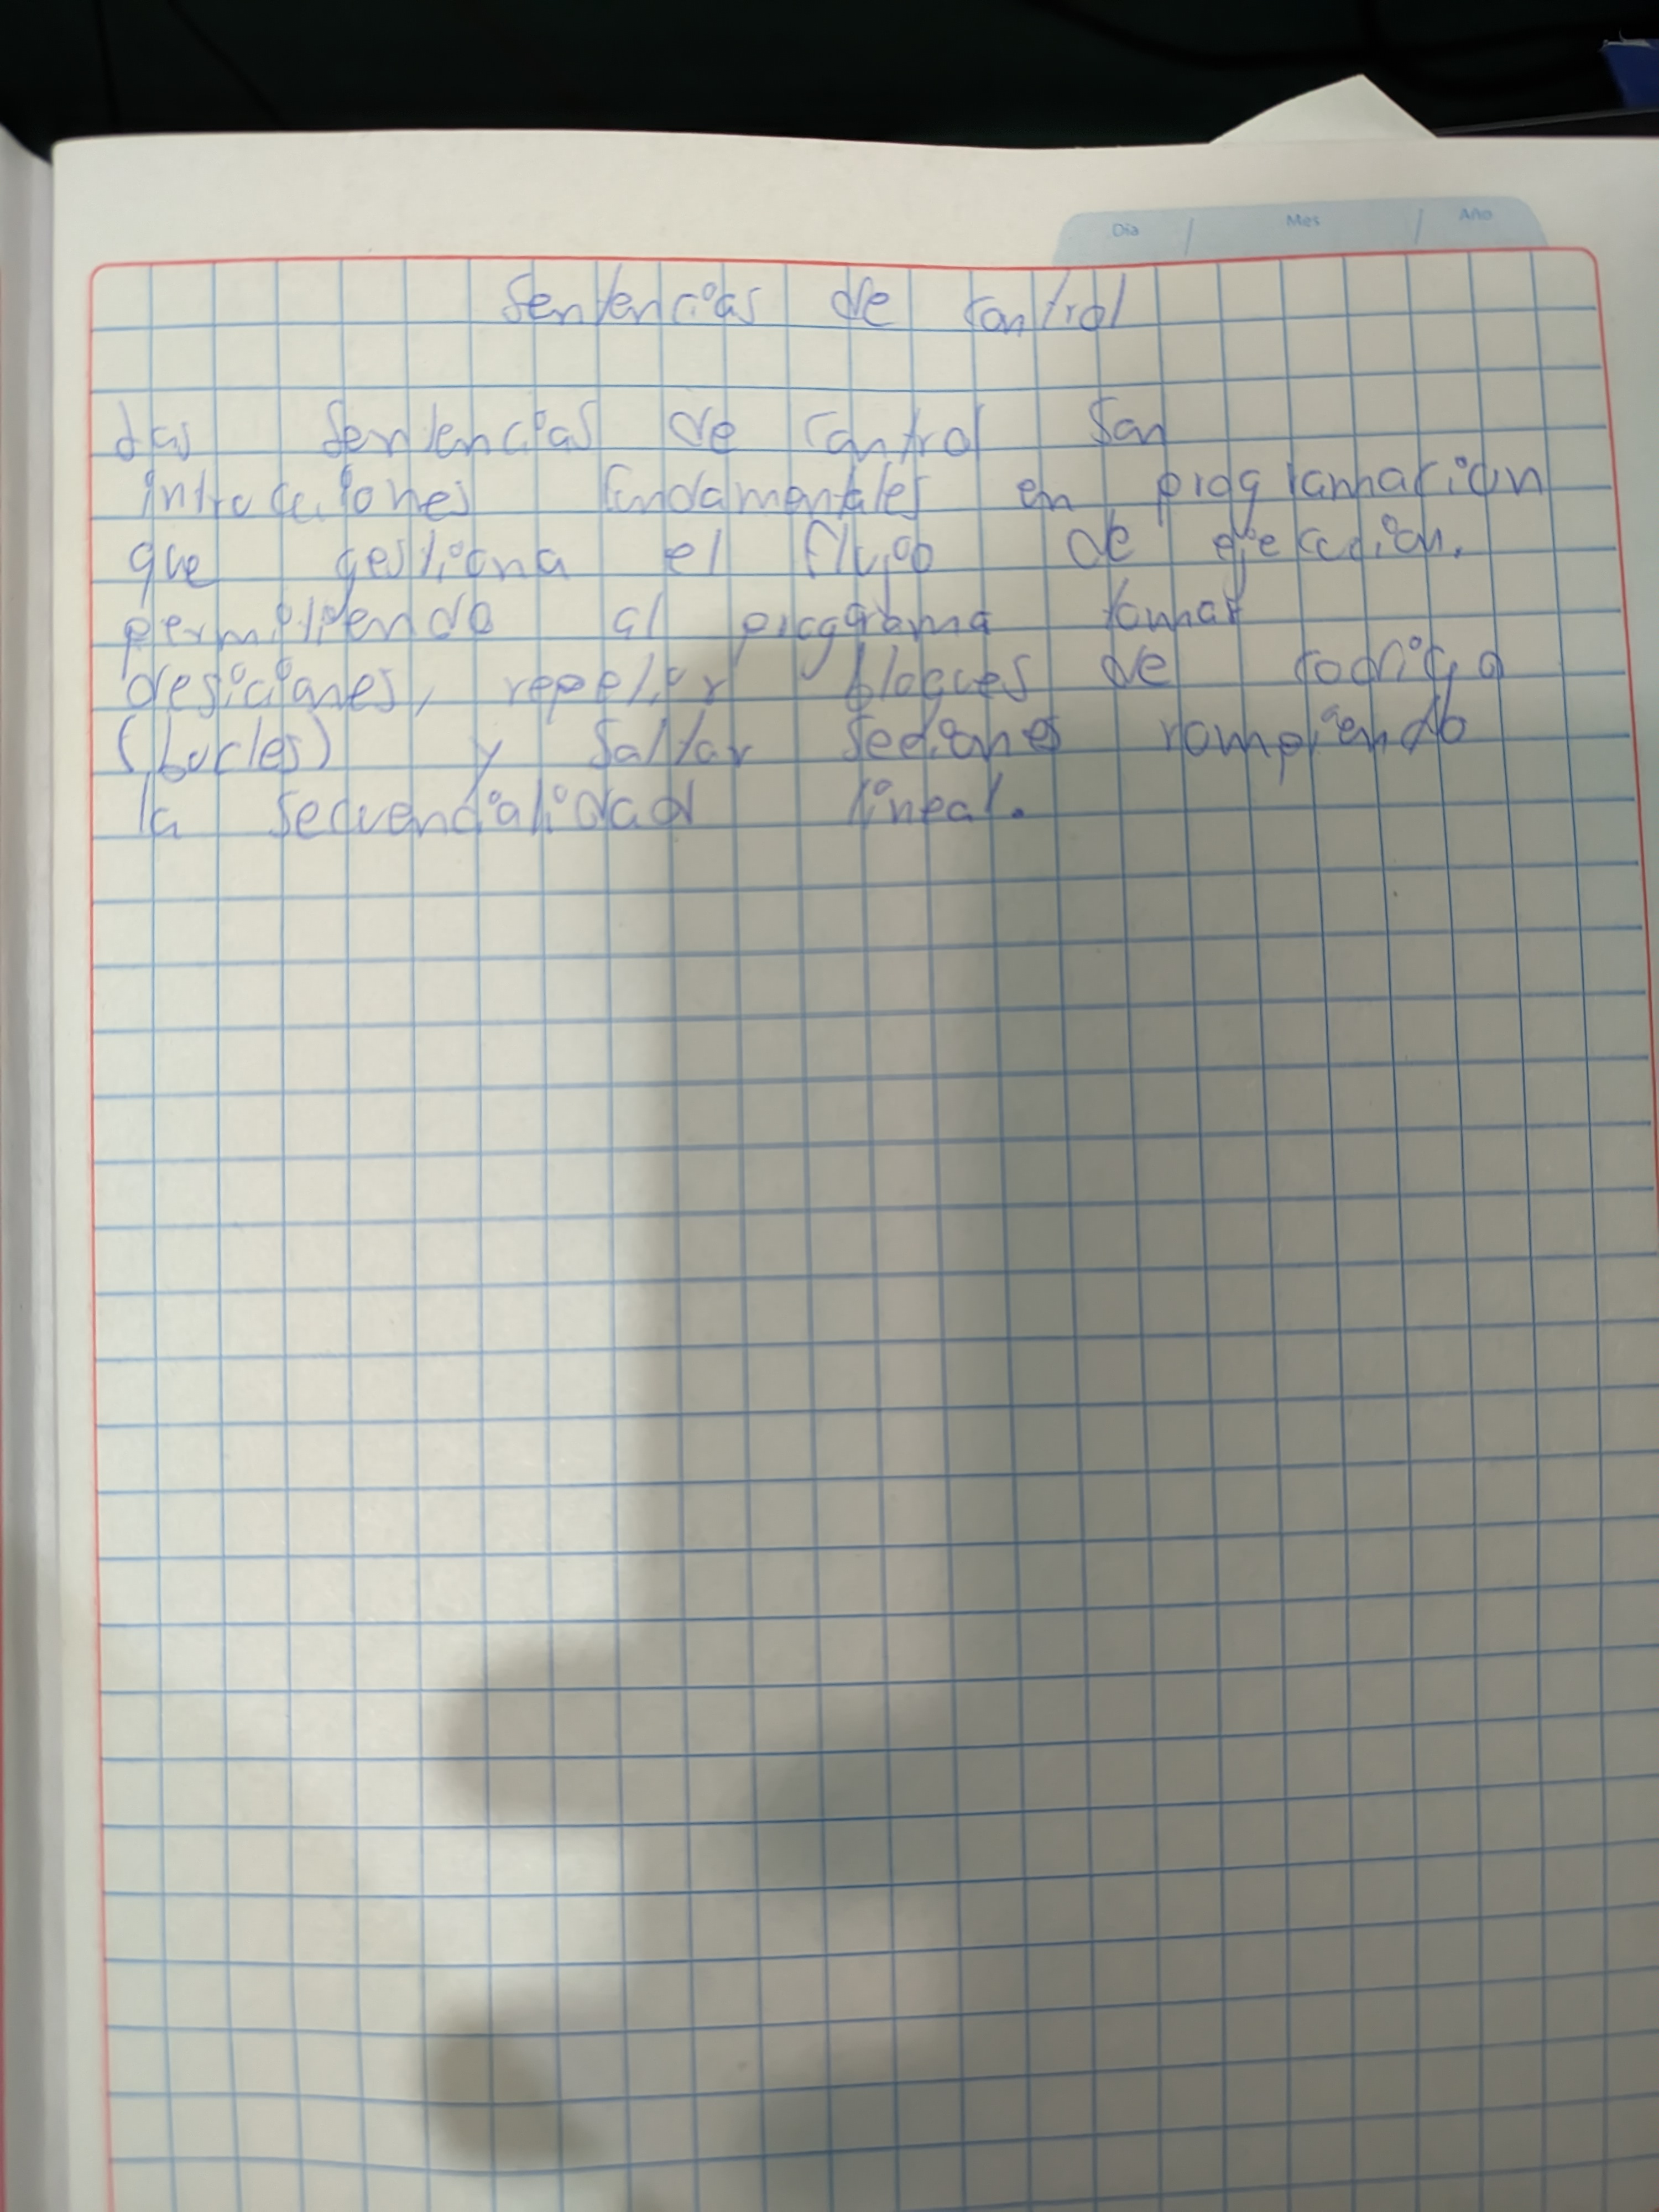 Día / Mes / Año
Sentencias de control
Las sentencias de control son
introcciones fundamentales en proggramacion
que gestiona el flujo de ejecución.
permitiendo al proggrama tomar
desiciones, repetir bloques de codigo
(bucles) y saltar secciones rompiendo
la secuencialidad lineal.